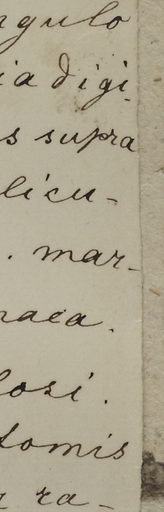 ngulo
ia digi-
s supra
licu-
. mar-
nacea.
losi.
tomis
ra-